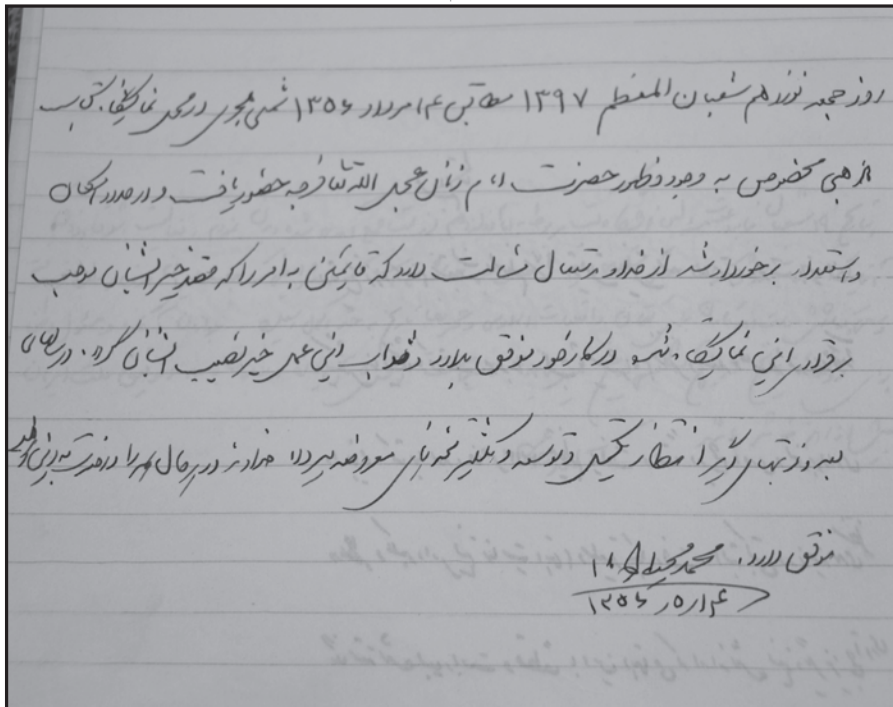 روز جمعه نوزدهم شعبان المعظم ۱۳۹۷ مطابق ۱۴ مرداد ۱۳۵۶ شمسی هجری در محل نمایشگاه کتاب
مذهبی مخصوص به وجود و ظهور حضرت امام زمان عجل الله تعا فرجه حضور یافت و در حدود امکان
و استعداد برخوردار شد از خداوند متعال مسئلت دارد که قائمین به امر را که قصد خیر ایشان موجب
برقراری این نمایشگاه شده در کار خود موفق بدارد و ثواب این عمل خیر نصیب ایشان گردد. در سالهای
بعد و نوبتهای دیگر انتظار تکمیل و توسعه و تکثیر میرود خداوند در هر حال همه را در خدمت به دین
موفق دارد. محمد محیط
۱۴ ر ۵ ر ۱۳۵۶